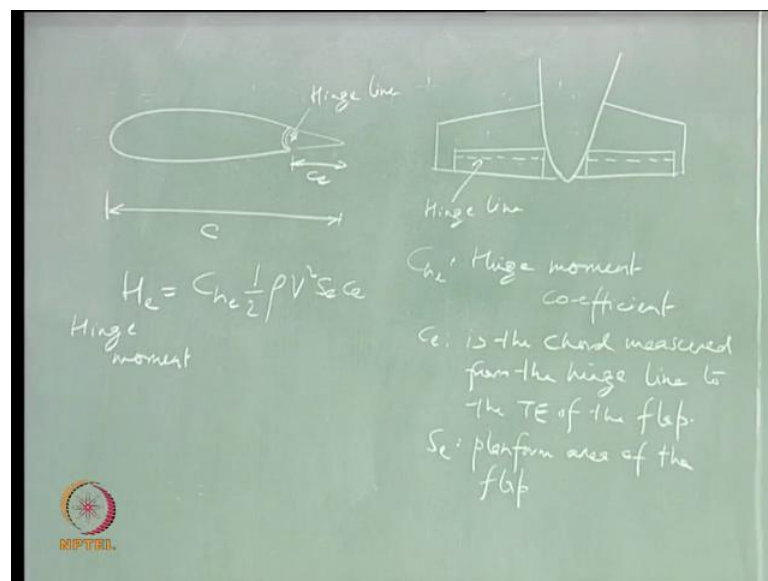 Hinge line
Ce
C
Hinge line
He = Che 1/2 ρV² Se Ce
Hinge
moment
Che: Hinge moment
co-efficient
Ce: is the chord measured
from the hinge line to
the TE of the flap.
Se: planform area of the
flap
NPTEL